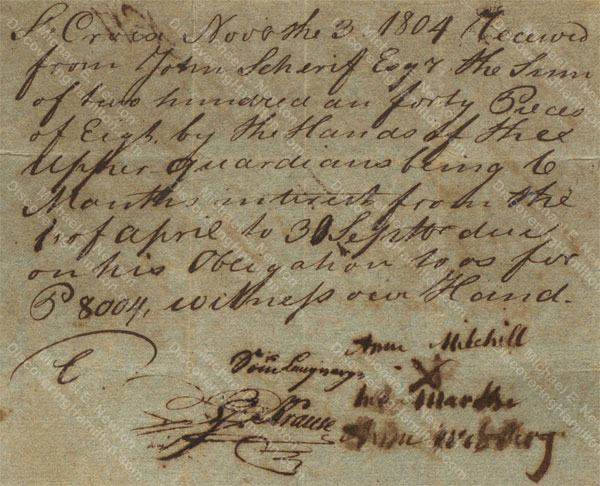 St Croix Novbthe 3 1804 Received
from John Scherif Esqr the Sum
of two hundred an forty Pieces
of Eigt. by the Hands of thee
Upper guardians being 6
Manths interest from the
1st of april to 30 Septbr due
on his Obligation to os for
P 8004, witness owr Hand.
Ann Mitchill
X
her Marcke
Krause
Ann